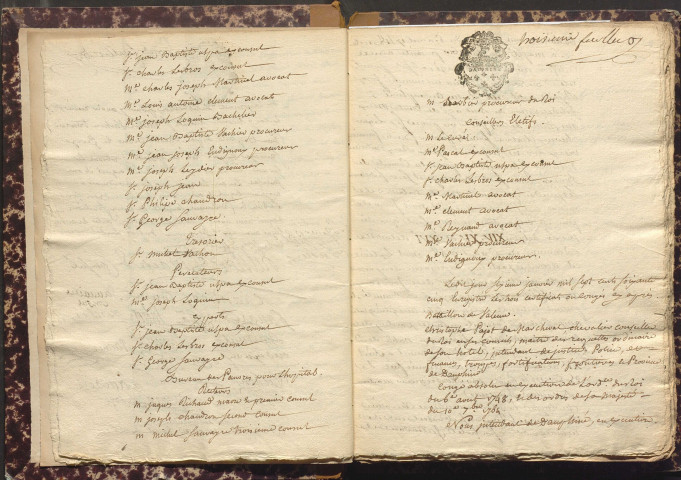 Sr. jean Baptiste uspa exconsul
Sr. charles Lesbros exconsul
Me. charles joseph Martinel avocat
Me. Louis antoine clement avocat
Me. joseph Loguin Bachelier
Me. jean Baptiste Vachier procureur
Me. jean joseph procureur
Me. joseph procureur
Sr. joseph jean
Sr. Philipe chaudron
Sr. George Sauvayre
Trésorier
Sr. michel Vachon
Sr. jean Baptiste uspa exconsul
Me. joseph Loguin
experts
Sr. jean Baptiste uspa exconsul
Sr. charles Lesbros exconsul
Sr. George Sauvayre
Bureau des Pauvres pour L'hopital
Recteurs
M. jaques Richaud maire premier consul
M. joseph chaudron second consul
M. michel Sauvayre troisieme consul
troisieme feuillet
M. procureur du Roi
Conseillers Electifs
M. le curé
Me. Pascal exconsul
Sr. jean Baptiste uspa exconsul
Sr. charles Lesbros exconsul
Me. Martinel avocat
Me. clement avocat
Me. Reynaud avocat
Me. Vachier procureur
Me. procureur
Ledit jour janvier mil sept cents soixante
cinq certificat congés
Bataillon de Valence
christophe Pajot de Marcheval chevalier conseiller
du Roi en ses conseils, maitre des requettes ordinaire
de son hotel, intendant de justice, Police, et
finances, troupes, fortifications, frontieres de Province
de Dauphiné
congé absolu en execution de Lordce. du Roi
du 6e. aout 1748, et des ordres de sa majesté
du 10e. xbre 1764
Nous intendant de Dauphiné, en execution